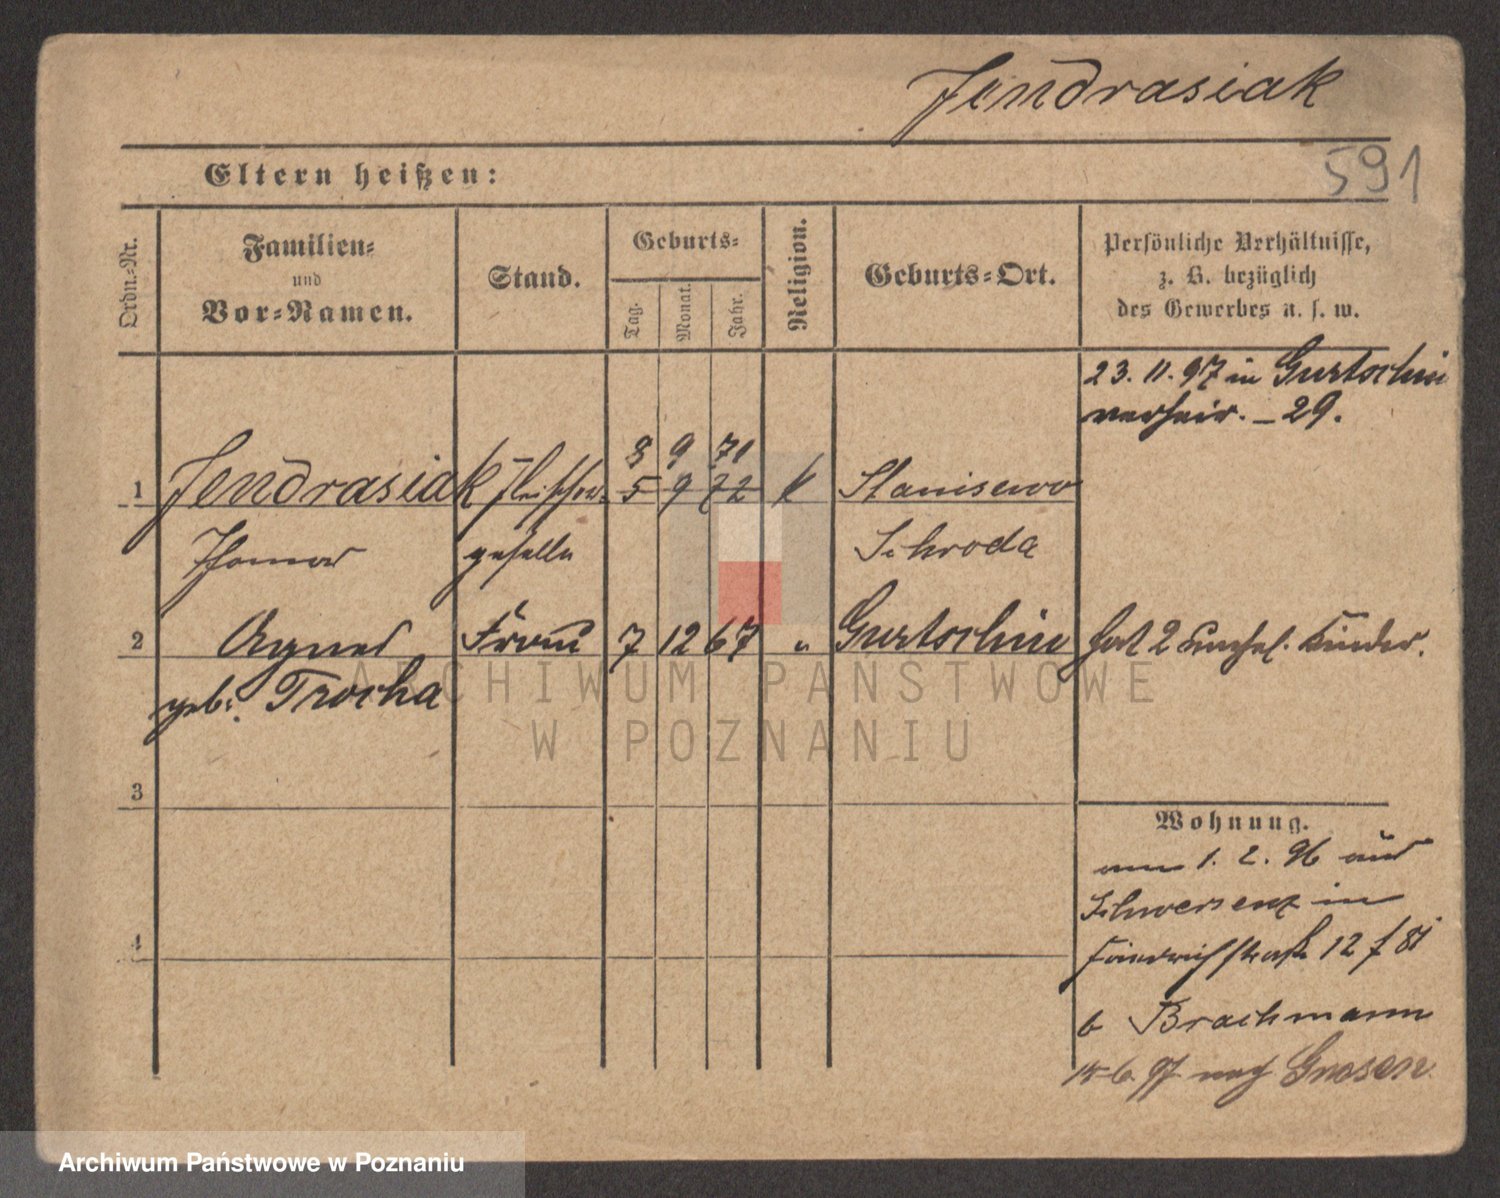 Jendrasiak
591
Eltern heißen:
Ordn.-Nr.
Familien-
und
Vor-Namen.
Stand.
Geburts-
Tag.
Monat.
Jahr.
Religion.
Geburts-Ort.
Persönliche Verhältnisse,
z. B. bezüglich
des Gewerbes u. s. w.
23. 11. 97 in Gurtschin
verheir. - 29.
8 9 71
1 Jendrasiak Fleischer- 5 9 72 k
Thomas geselle Schroda
2 Agnes Frau 7 12 67 " Gurtschin hat 2 unehel. Kinder.
geb. Trocha
3
Wohnung.
am 1. 2. 96 aus
Schwersenz in
4
Friedrichstraße 12
b Brachmann
97 nach
ARCHIWUM PAŃSTWOWE
W POZNANIU
Archiwum Państwowe w Poznaniu